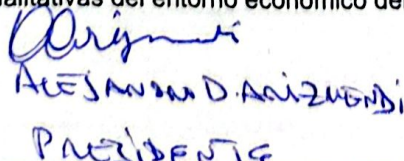 alitativas del entorno económico de
ALEJANDRO D. ARIZMENDI
PRESIDENTE